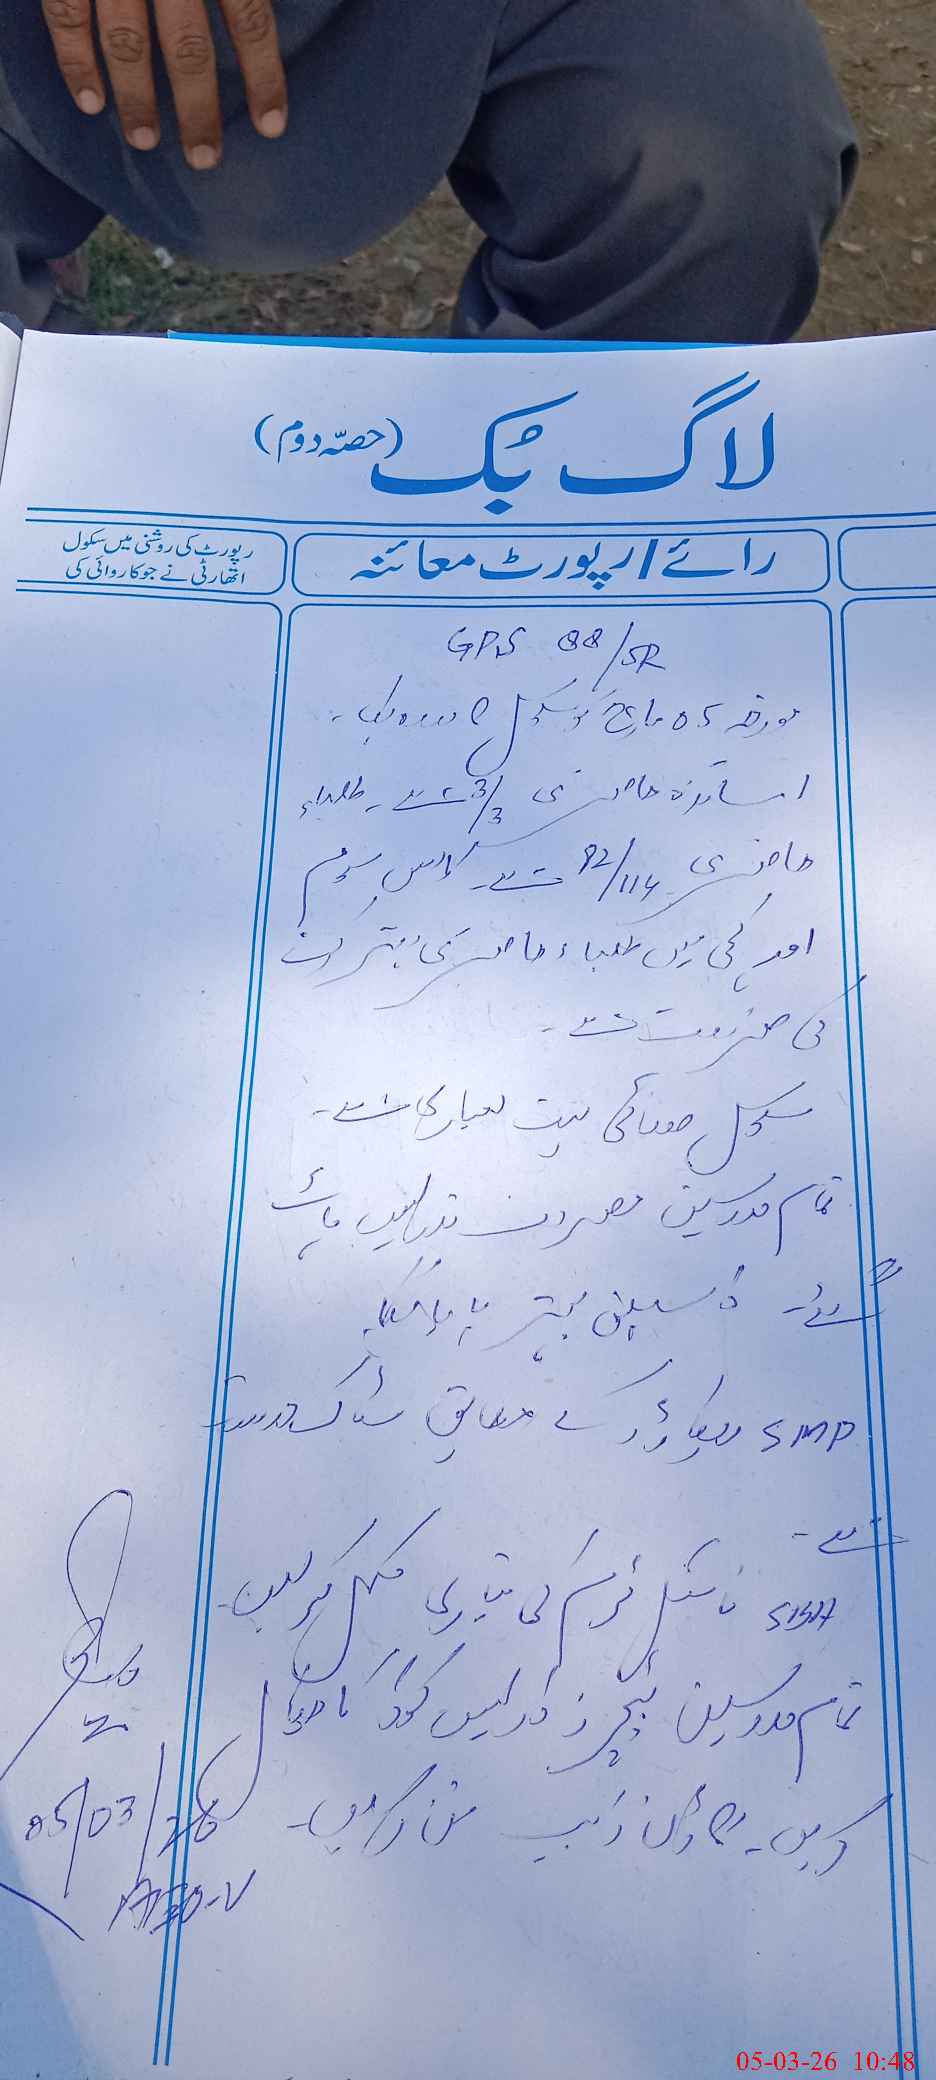 لاگ بک (حصّہ دوم)
رائے/رپورٹ معائنہ
رپورٹ کی روشنی میں سکول
اتھارٹی نے جو کاروائی کی
GPS 88/5R
مورخہ 05 مارچ کو سکول وزٹ کیا۔
اساتذہ حاضری 3/3 ہے۔ طلباء
حاضری 92/114 ہے۔ کلاس سوم
اور کچی میں طلباء حاضری بہتر کرنے
کی ضرورت ہے۔
سکول صفائی بہت معیاری ہے۔
تمام مدرسین مصروف تدریس پائے
گئے۔ ڈسپلن بہتر پایا گیا۔
SMP ریکارڈ کے مطابق سٹاک درست
ہے۔
SBA فائنل ٹرم کی تیاری مکمل کر لیں۔
تمام مدرسین ٹیچرز ڈائری
کریں۔
05/03/26
AEO-V
05-03-26 10:48